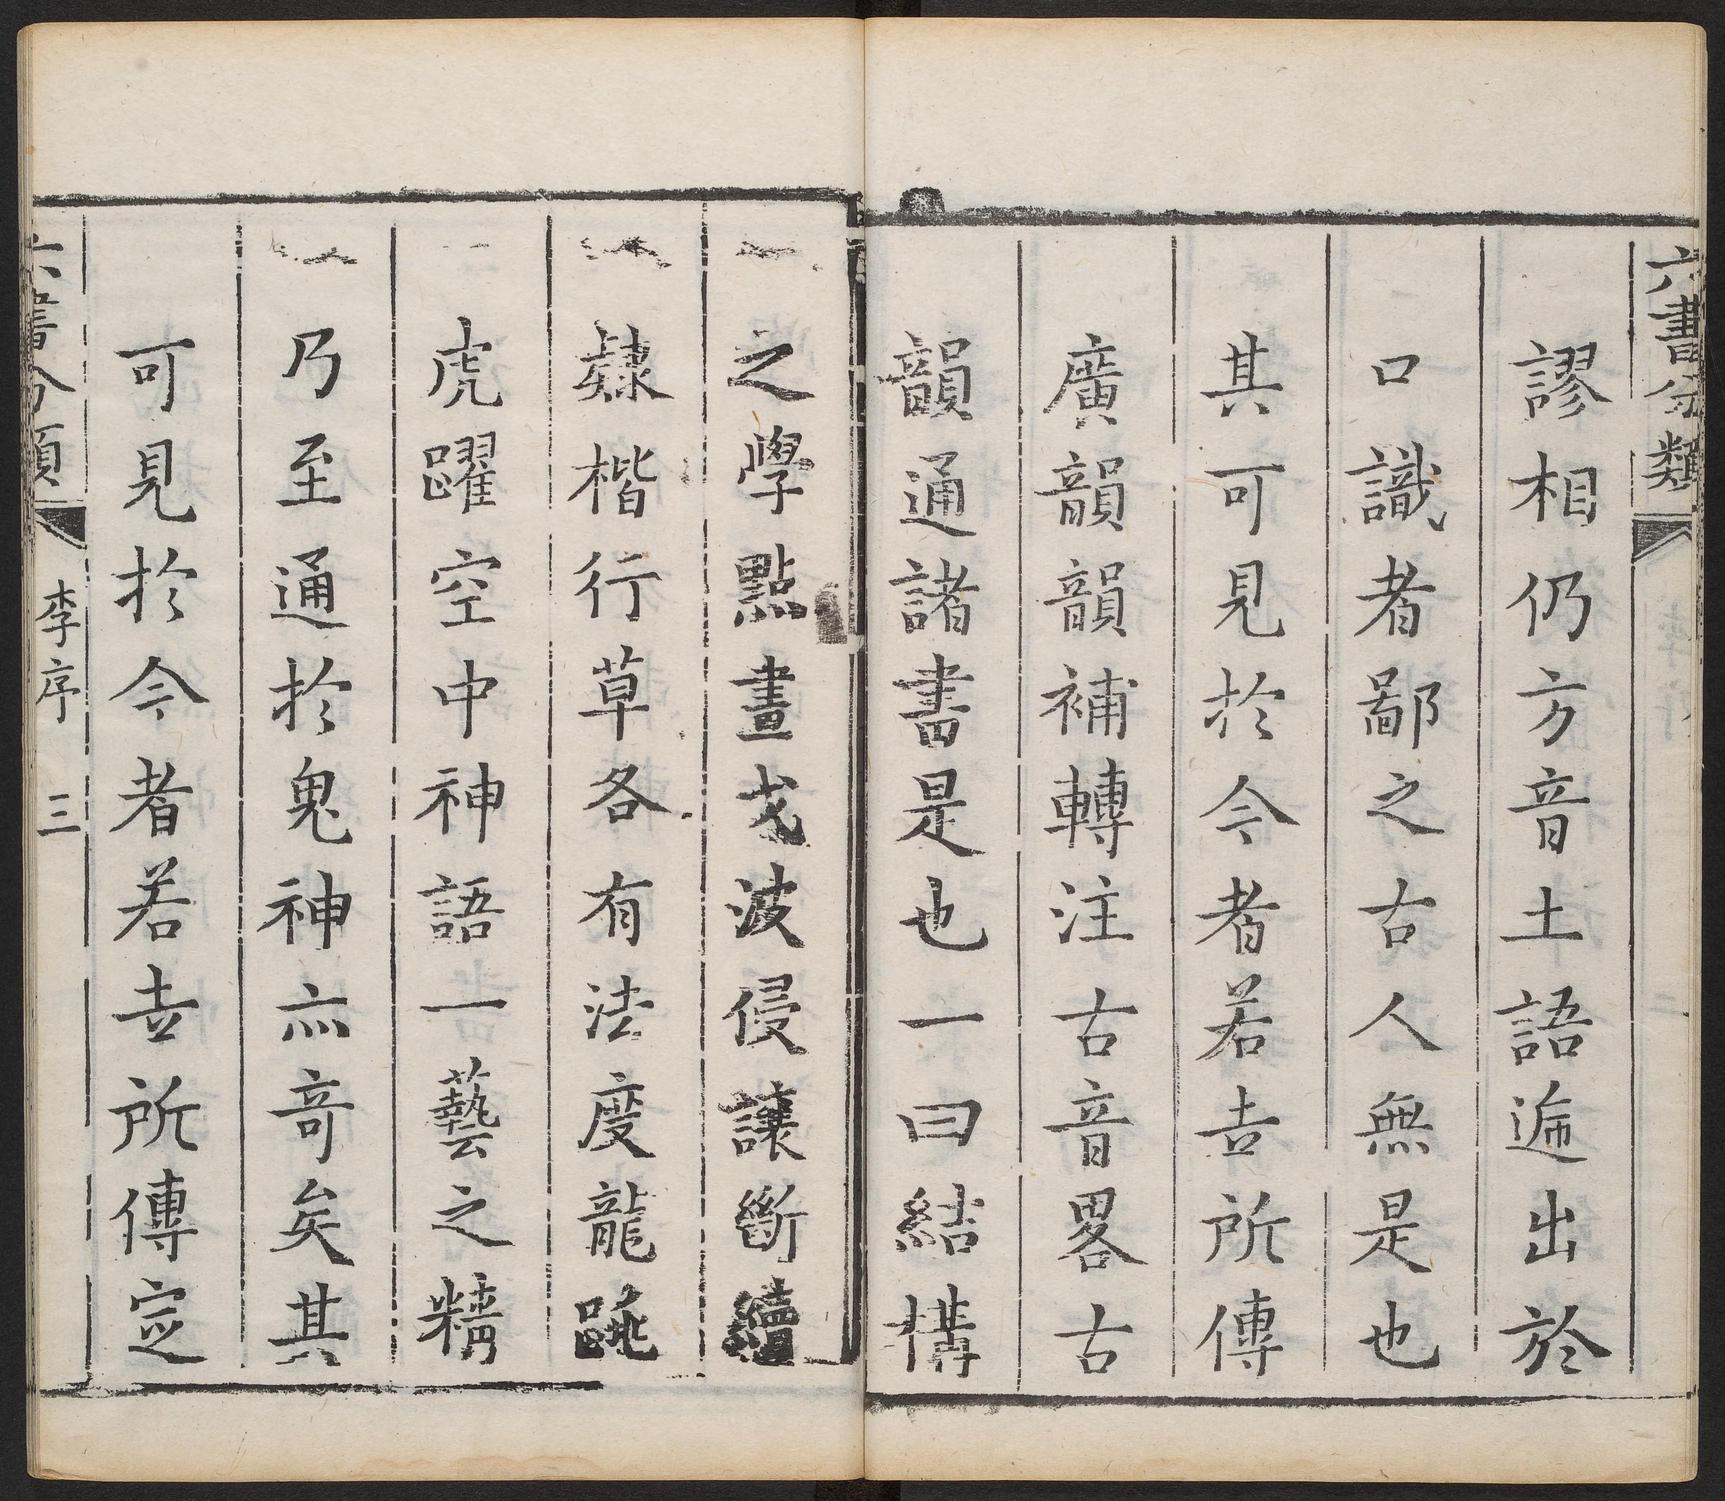 六書分類
謬相仍方音土語遍出於
口識者鄙之古人無是也
其可見於今者若吉所傳
廣韻韻補轉注古音畧古
韻通諸書是也一曰結構
之學點畫戈波侵讓斷續
隸楷行草各有法度龍跳
虎躍空中神語一藝之精
乃至通於鬼神亦奇矣其
可見於今者若吉所傳定
六書分類 李序 三